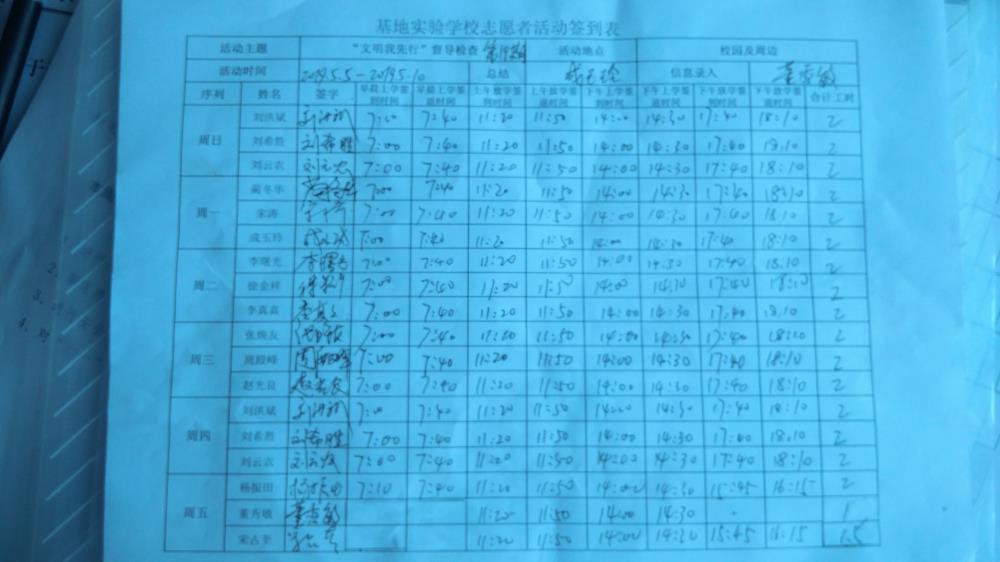 基地实验学校志愿者活动签到表
活动主题 "文明我先行"督导检查 活动地点 校园及周边
活动时间 2019.5.5-2019.5.10 总结 信息录入 董秀敏
序列 姓名 签字 早晨上学签到时间 早晨上学签退时间 上午放学签到时间 上午放学签退时间 下午上学签到时间 下午上学签退时间 下午放学签到时间 下午放学签退时间 合计工时
周日 刘洪斌 刘洪斌 7:00 7:40 11:20 11:50 14:00 14:30 17:40 18:10 2
刘希胜 刘希胜 7:00 7:40 11:20 11:50 14:00 14:30 17:40 18:10 2
刘云农 刘云农 7:00 7:40 11:20 11:50 14:00 14:30 17:40 18:10 2
周一 蔺冬华 7:00 7:40 11:20 11:50 14:00 14:30 17:40 18:10 2
宋涛 宋涛 7:00 7:40 11:20 11:50 14:00 14:30 17:40 18:10 2
成玉玲 7:00 7:40 11:20 11:50 14:00 14:30 17:40 18:10 2
周二 李曙光 李曙光 7:00 7:40 11:20 11:50 14:00 14:30 17:40 18:10 2
徐金祥 7:00 7:40 11:20 11:50 14:00 14:30 17:40 18:10 2
李真真 李真真 7:00 7:40 11:20 11:50 14:00 14:30 17:40 18:10 2
周三 张焕友 7:00 7:40 11:20 11:50 14:00 14:30 17:40 18:10 2
周殿峰 周殿峰 7:00 7:40 11:20 11:50 14:00 14:30 17:40 18:10 2
赵光良 赵光良 7:00 7:40 11:20 11:50 14:00 14:30 17:40 18:10 2
周四 刘洪斌 刘洪斌 7:00 7:40 11:20 11:50 14:00 14:30 17:40 18:10 2
刘希胜 刘希胜 7:00 7:40 11:20 11:50 14:00 14:30 17:40 18:10 2
刘云农 刘云农 7:00 7:40 11:20 11:50 14:00 14:30 17:40 18:10 2
周五 杨振田 杨振田 7:10 7:40 11:20 11:50 14:00 14:30 15:45 16:15 2
董秀敏 董秀敏 11:20 11:50 14:00 14:30 1
宋占奎 宋占奎 11:20 11:50 14:00 14:30 15:45 16:15 1.5